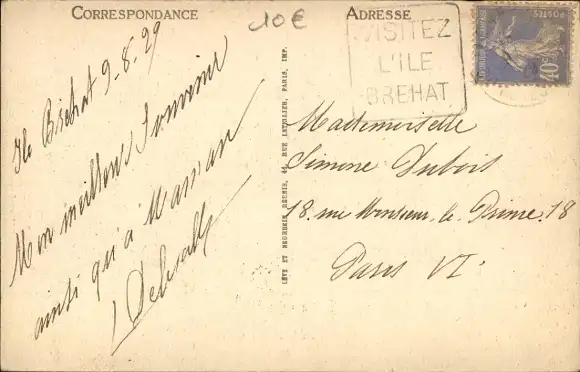 CORRESPONDANCE
10€
ADRESSE
VISITEZ
L'ILE
BREHAT
POSTES
40c
Ile Bréhat 9-8-29
Mon meilleur Souvenir
ainsi qu'à Maman
LÉVY ET NEURDEIN RÉUNIS, 44, RUE LETELLIER, PARIS, IMP.
Mademoiselle
Simone Dubois
18. rue Monsieur. le. Prince. 18
Paris VI